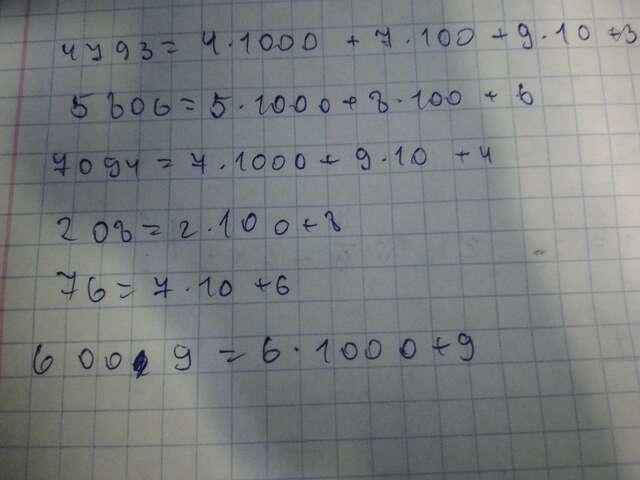 4793 = 4·1000 + 7·100 + 9·10 + 3
5806 = 5·1000 + 8·100 + 6
7094 = 7·1000 + 9·10 + 4
208 = 2·100 + 8
76 = 7·10 + 6
6009 = 6·1000 + 9